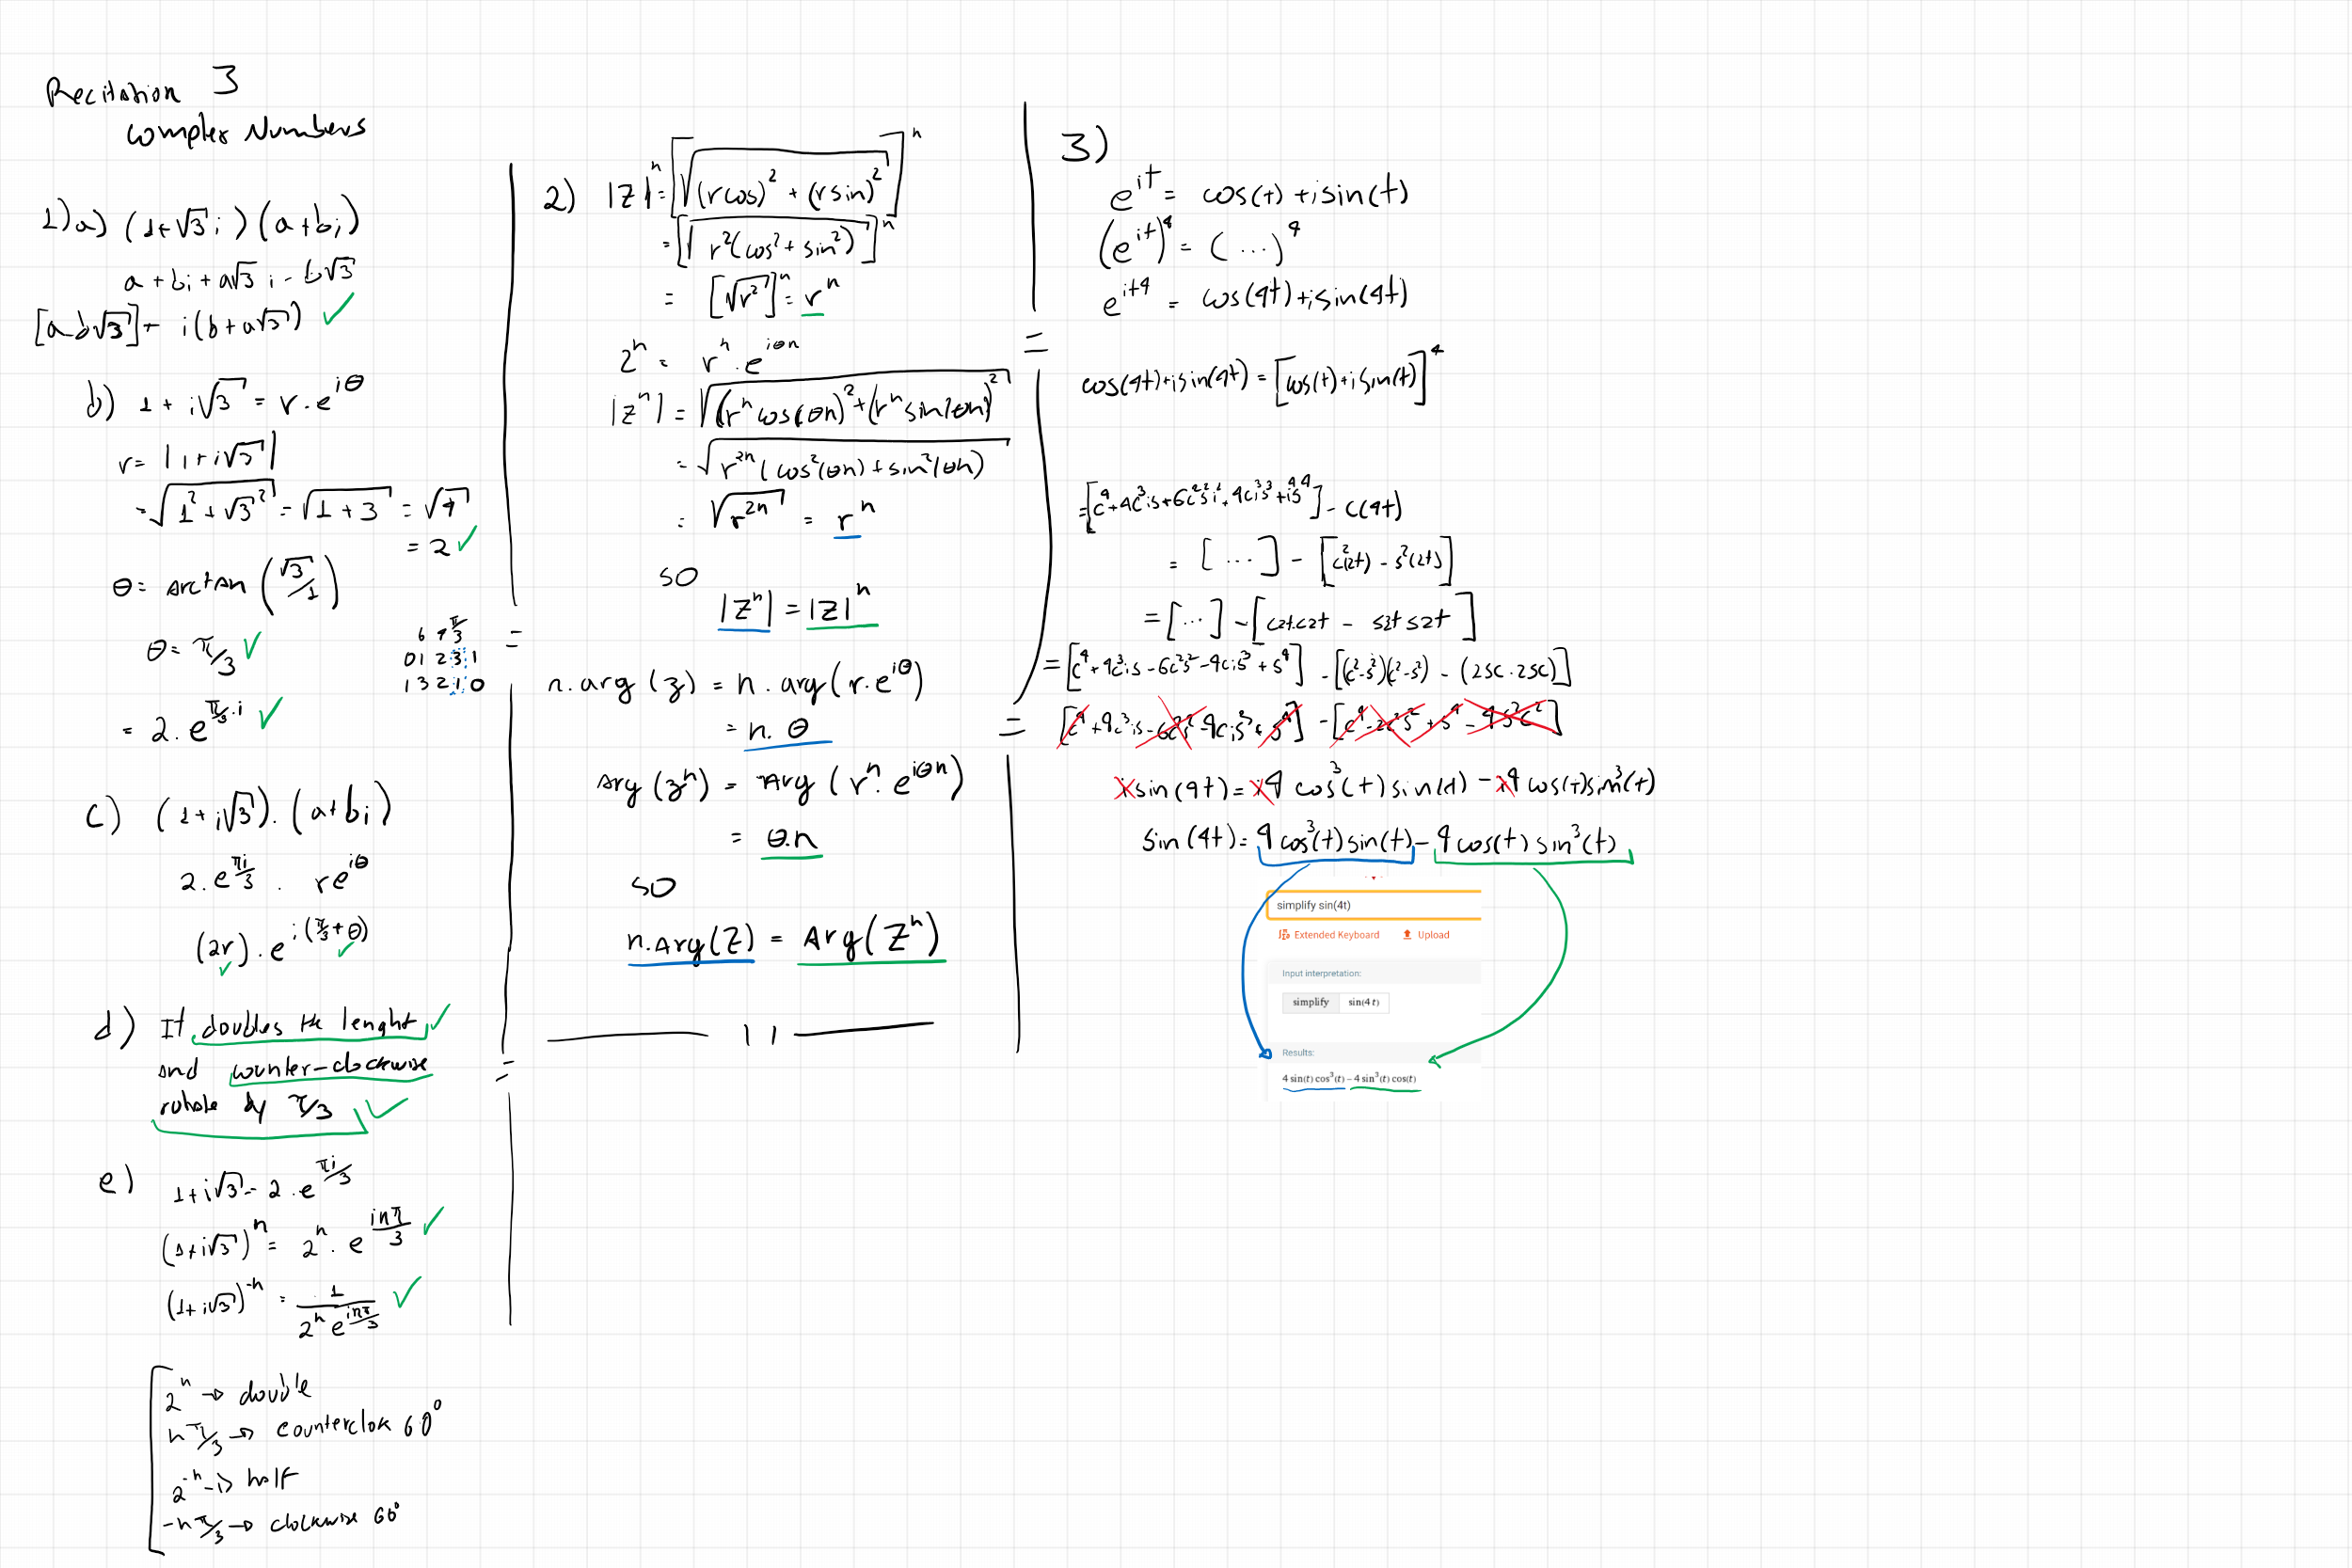 Recitation 3
Complex Numbers
1) a) (1+√3 i)(a+bi)
a + bi + a√3 i - b√3
[a b√3] + i(b+a√3) ✓
b) 1 + i√3 = r.e^{iθ}
r = |1+i√3|
= √(1² + √3²) = √(1+3) = √4
= 2 ✓
θ = arctan (√3/1)
θ = π/3 ✓
6 4 π/3
0 1 2 3 1
1 3 2 1 0
= 2.e^{π/3.i} ✓
c) (1+i√3).(a+bi)
2.e^{πi/3} . re^{iθ}
(2r).e^{i(π/3+θ)}
✓ ✓
d) It doubles the lenght ✓
and counter-clockwise
rotate by π/3 ✓
e) 1+i√3 = 2.e^{πi/3}
(1+i√3)^n = 2^n.e^{inπ/3} ✓
(1+i√3)^{-n} = 1/(2^n e^{inπ/3}) ✓
2^n → double
nπ/3 → counterclok 60°
2^{-n} → half
-nπ/3 → clockwise 60°
2) |z|^n = [√((rcos)² + (rsin)²)]^n
= [√(r²(cos² + sin²))]^n
= [√r²]^n = r^n
z^n = r^n.e^{iθn}
|z^n| = √((r^n cos(θn)² + (r^n sin(θn)²)
= √(r^{2n}(cos²(θn) + sin²(θn))
= √r^{2n} = r^n
so
|z^n| = |z|^n
n.arg(z) = n.arg(r.e^{iθ})
= n.θ
Arg(z^n) = Arg(r^n.e^{iθn})
= θ.n
so
n.Arg(z) = Arg(z^n)
3)
e^{it} = cos(t) + isin(t)
(e^{it})^4 = (...)^4
e^{it4} = cos(4t) + isin(4t)
cos(4t)+isin(4t) = [cos(t)+isin(t)]^4
= [c⁴+4c³is+6c²s²i²+4ci³s³+i⁴s⁴] - c(4t)
= [...] - [c²(2t) - s²(2t)]
= [...] - [c2t.c2t - s2t s2t]
= [c⁴+4c³is-6c²s²-4cis³+s⁴] - [(c²-s²)(c²-s²) - (2sc.2sc)]
[c⁴+4c³is-6c²s²-4cis³+s⁴] - [c⁴-2c²s²+s⁴-4s²c²]
isin(4t) = i4 cos³(t)sin(t) - i4 cos(t)sin³(t)
sin(4t) = 4cos³(t)sin(t) - 4cos(t)sin³(t)
simplify sin(4t)
Extended Keyboard Upload
Input interpretation:
simplify sin(4 t)
Results:
4 sin(t) cos³(t) - 4 sin³(t) cos(t)